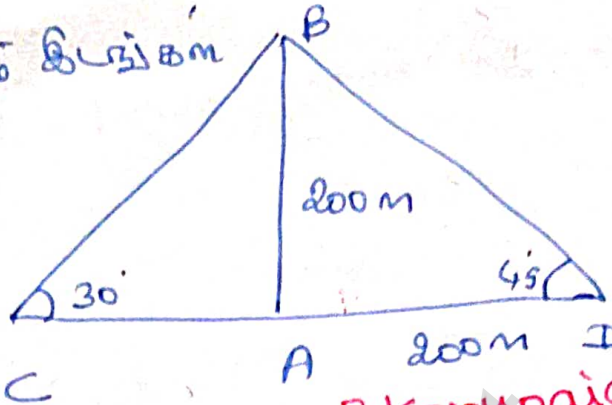 B
இடங்கள்
200 m
30°
45°
C
A
200 m